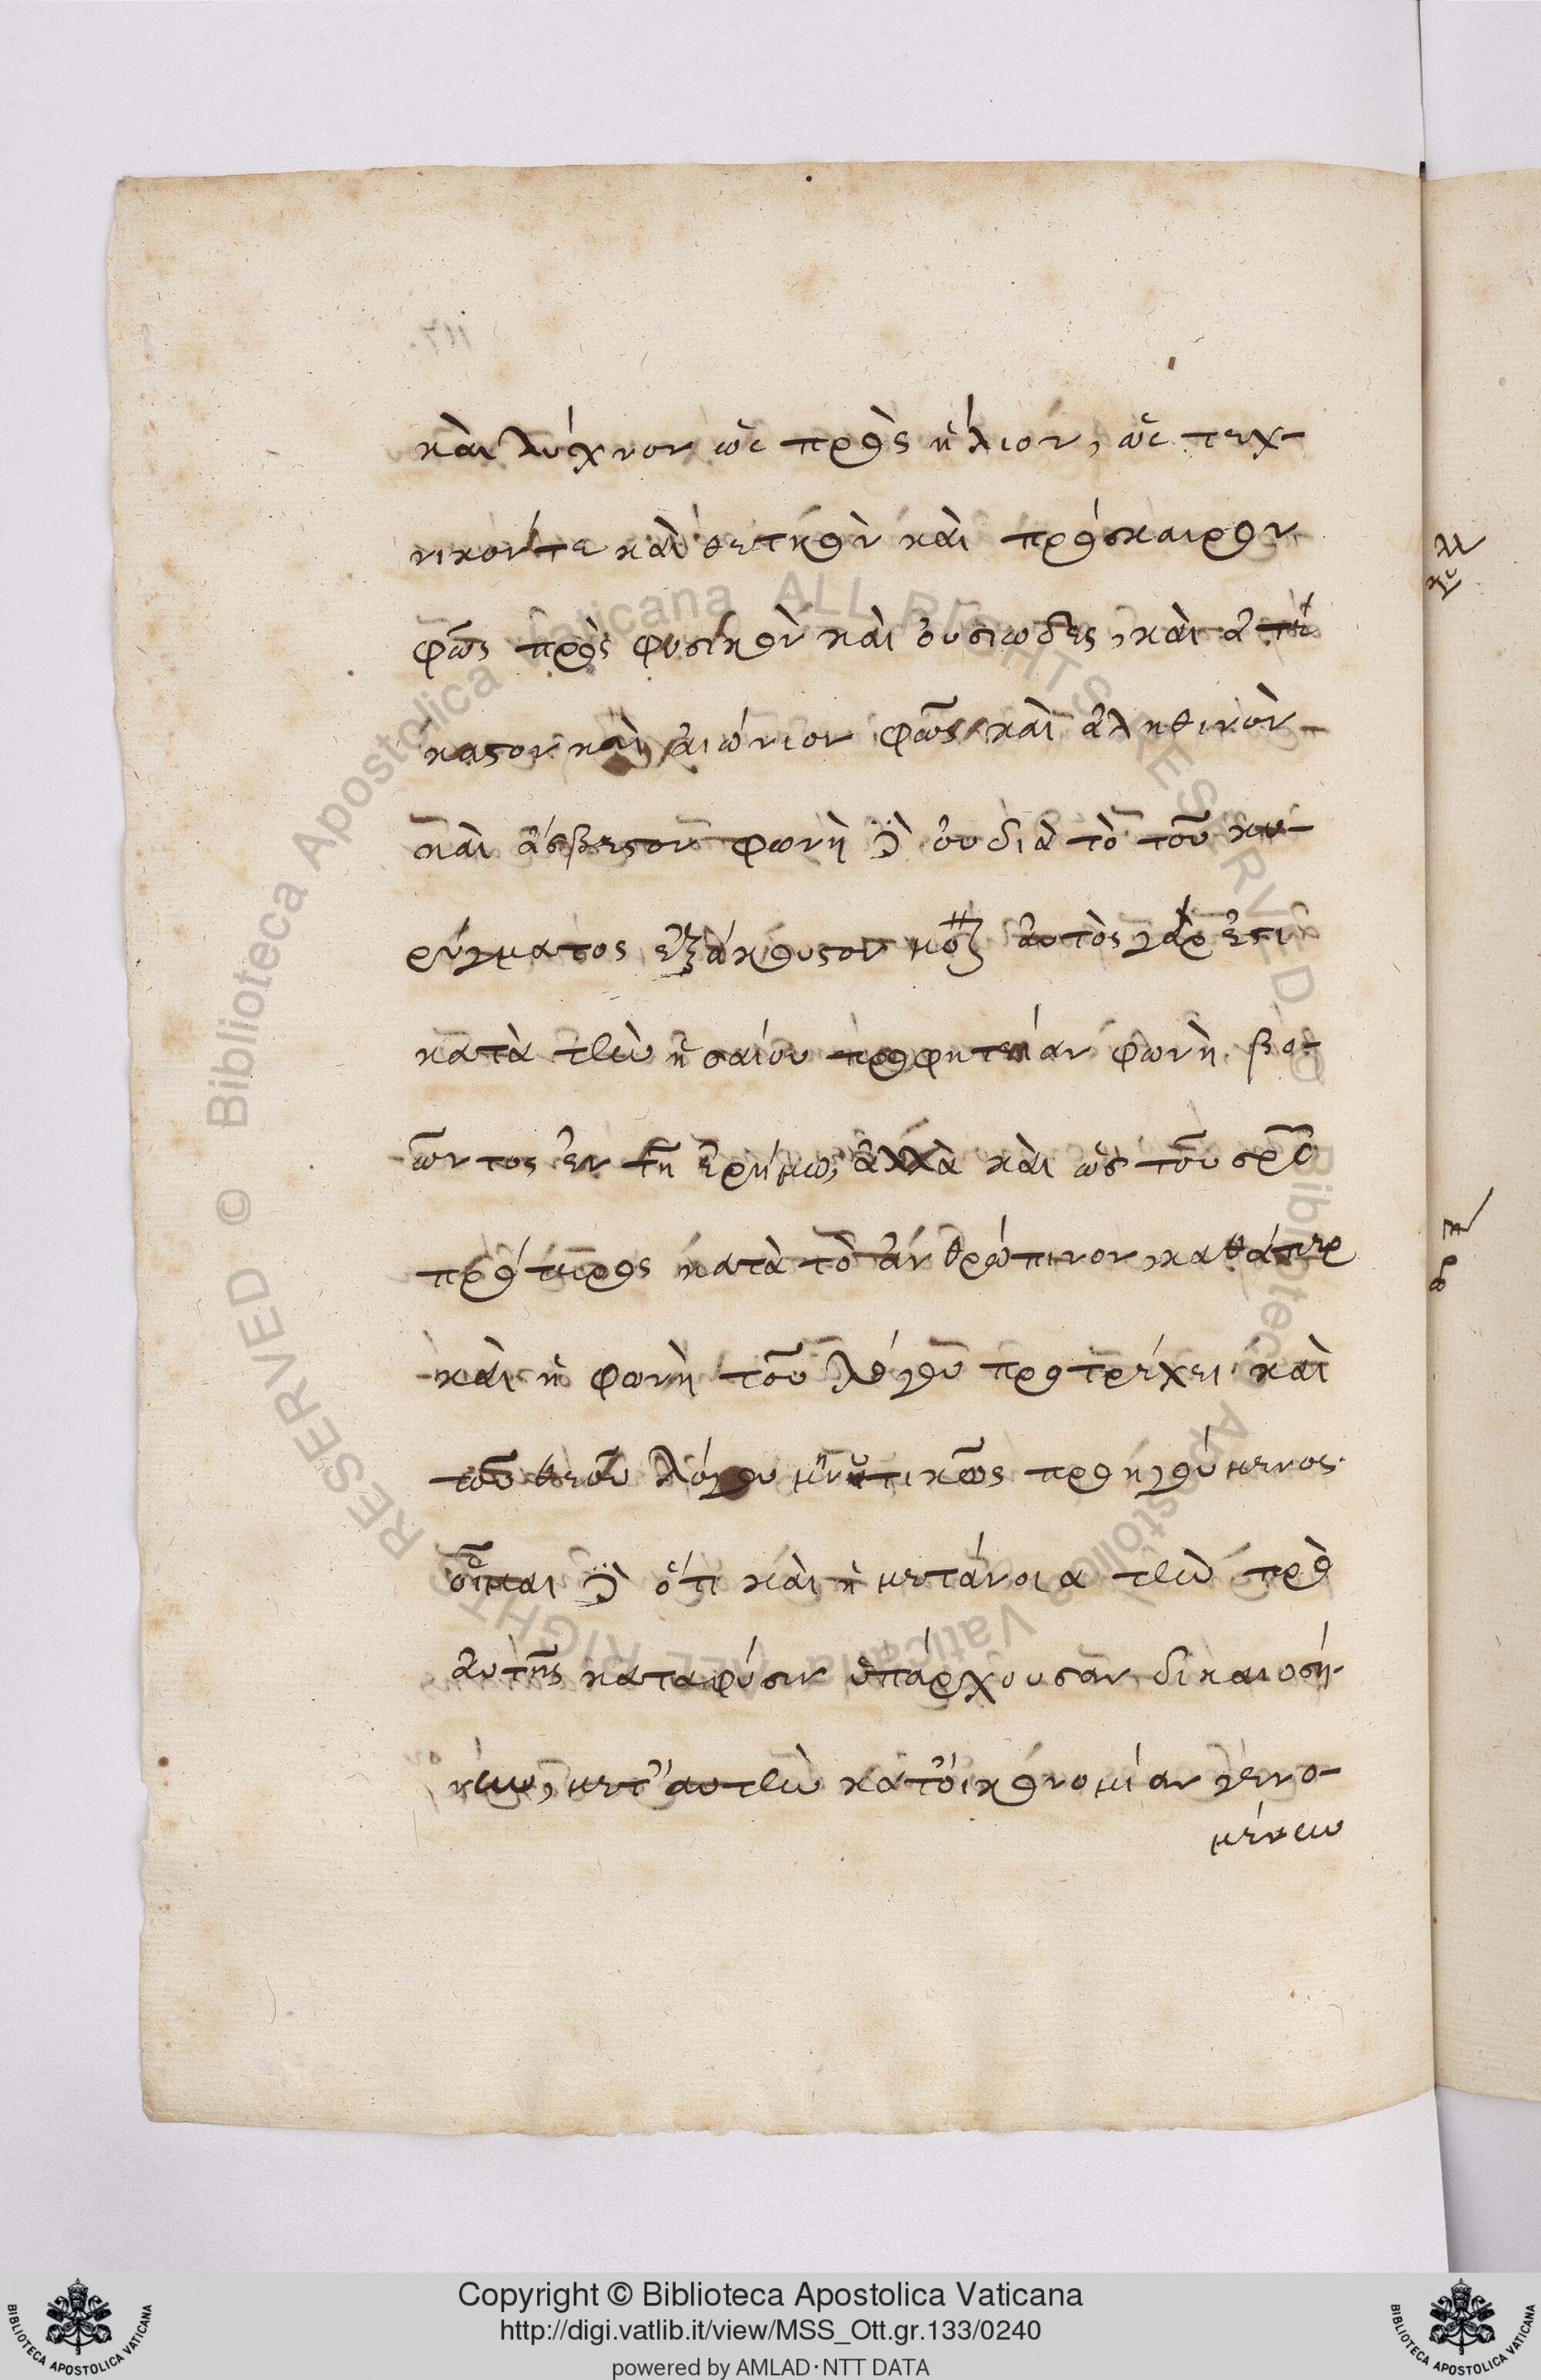 καὶ λύχνον ὡς πρὸς ἥλιον, ὡς τεχ-
νικόντε καὶ θετικὸν καὶ πρόσκαιρον
φῶς πρὸς φυσικὸν καὶ οὐσιωδες, καὶ
καστον καὶ αἰώνιον φῶς καὶ ἀληθινὸν
καὶ ἄσβεστον φωνὴ δὲ οὐ διὰ τὸ τοῦ κη-
ρύγματος ἐξάκουστον μόνον αὐτὸς γάρ ἐστι
κατὰ τὴν ἡσαΐου προφητείαν φωνὴ βο-
ῶντος ἐν τῆ ἐρήμω, ἀλλὰ καὶ ὡς τοῦ σρς
πρότερος κατὰ τὸ ἀνθρώπινον, καθάπερ
καὶ ἡ φωνὴ τοῦ λόγου προτρέχει καὶ
τοῦ θεοῦ λόγου μηνυτικῶς προηγούμενος.
οἶμαι δὲ ὅτι καὶ ἡ μετάνοια τὴν πρὸ
αὐτῆς καταφύσιν ὑπάρχουσαν δικαιοσύ-
νην, μετ' αυτὴν κατ' οἰκονομίαν γενο-
μένην
Copyright © Biblioteca Apostolica Vaticana
http://digi.vatlib.it/view/MSS_Ott.gr.133/0240
powered by AMLAD·NTT DATA